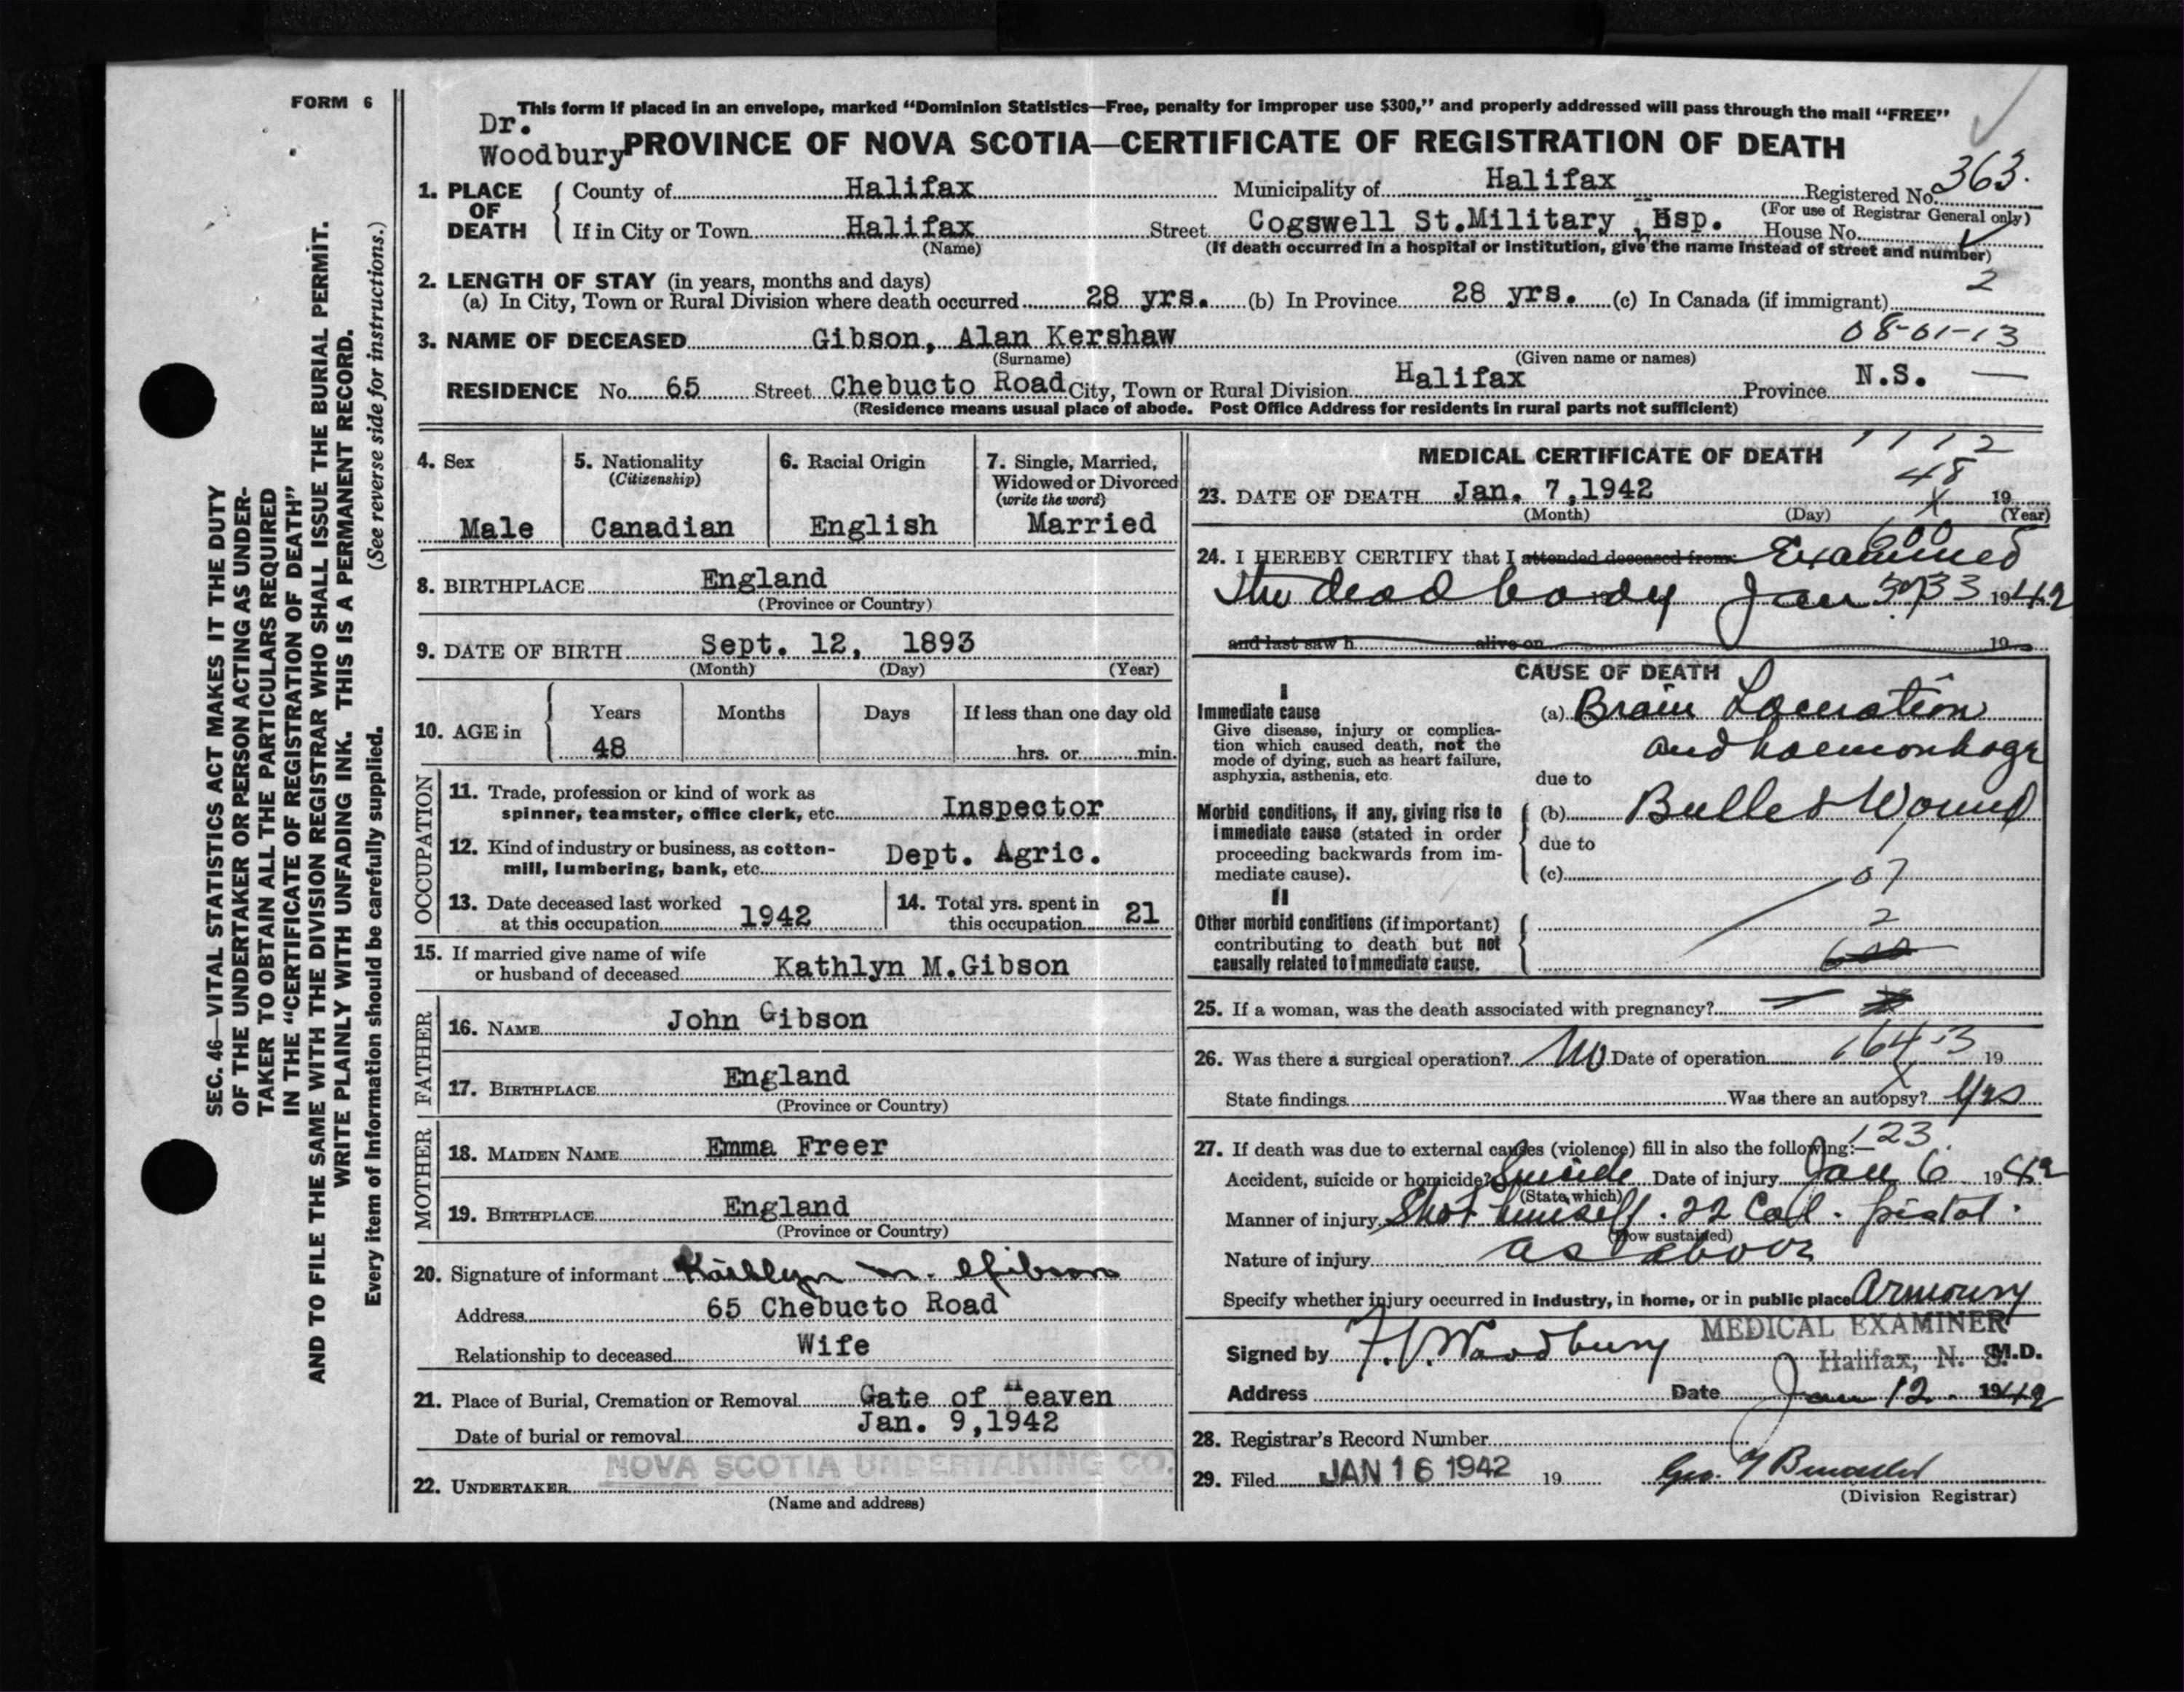 FORM 6
This form if placed in an envelope, marked “Dominion Statistics—Free, penalty for improper use $300,” and properly addressed will pass through the mail “FREE”
Dr.
Woodbury
PROVINCE OF NOVA SCOTIA—CERTIFICATE OF REGISTRATION OF DEATH
1. PLACE OF DEATH
County of Halifax Municipality of Halifax Registered No. 363.
(For use of Registrar General only)
If in City or Town Halifax Street Cogswell St.Military Hsp. House No.
(Name) (If death occurred in a hospital or institution, give the name instead of street and number)
2. LENGTH OF STAY (in years, months and days) 2
(a) In City, Town or Rural Division where death occurred 28 yrs. (b) In Province 28 yrs. (c) In Canada (if immigrant)
3. NAME OF DECEASED Gibson, Alan Kershaw 08-01-13
(Surname) (Given name or names)
RESIDENCE No. 65 Street Chebucto Road City, Town or Rural Division Halifax Province N.S. —
(Residence means usual place of abode. Post Office Address for residents in rural parts not sufficient)
4. Sex
Male
5. Nationality
(Citizenship)
Canadian
6. Racial Origin
English
7. Single, Married,
Widowed or Divorced
(write the word)
Married
8. BIRTHPLACE England
(Province or Country)
9. DATE OF BIRTH Sept. 12, 1893
(Month) (Day) (Year)
10. AGE in
Years Months Days If less than one day old
48 hrs. or min.
OCCUPATION
11. Trade, profession or kind of work as
spinner, teamster, office clerk, etc. Inspector
12. Kind of industry or business, as cotton-
mill, lumbering, bank, etc. Dept. Agric.
13. Date deceased last worked
at this occupation 1942
14. Total yrs. spent in
this occupation 21
15. If married give name of wife
or husband of deceased Kathlyn M.Gibson
FATHER
16. NAME John Gibson
17. BIRTHPLACE England
(Province or Country)
MOTHER
18. MAIDEN NAME Emma Freer
19. BIRTHPLACE England
(Province or Country)
20. Signature of informant Kathlyn M. Gibson
Address 65 Chebucto Road
Relationship to deceased Wife
21. Place of Burial, Cremation or Removal Gate of Heaven
Date of burial or removal Jan. 9,1942
22. UNDERTAKER NOVA SCOTIA UNDERTAKING CO.
(Name and address)
MEDICAL CERTIFICATE OF DEATH 1112
48
23. DATE OF DEATH Jan. 7,1942 19
(Month) (Day) (Year)
600
24. I HEREBY CERTIFY that I attended deceased from: Examined
the dead body Jan 1942
and last saw h alive on 19
CAUSE OF DEATH
I
Immediate cause
Give disease, injury or complica-
tion which caused death, not the
mode of dying, such as heart failure,
asphyxia, asthenia, etc.
(a) Brain Laceration
and haemorrhage
due to
Morbid conditions, if any, giving rise to
immediate cause (stated in order
proceeding backwards from im-
mediate cause).
(b) Bullet Wound
due to
(c) 07
II
Other morbid conditions (if important)
contributing to death but not
causally related to immediate cause.
2
600
25. If a woman, was the death associated with pregnancy? —
26. Was there a surgical operation? No Date of operation 164-3 19
State findings Was there an autopsy? Yes
27. If death was due to external causes (violence) fill in also the following:— 123
Accident, suicide or homicide? Suicide Date of injury Jan 6 1942
(State which)
Manner of injury Shot himself. 22 Call. pistol.
(How sustained)
Nature of injury as above
Specify whether injury occurred in industry, in home, or in public place Armoury
MEDICAL EXAMINER
Signed by F.V. Woodbury Halifax, N. S. M.D.
Address Date Jan 12. 1942
28. Registrar's Record Number
29. Filed JAN 16 1942 19
(Division Registrar)
SEC. 46—VITAL STATISTICS ACT MAKES IT THE DUTY
OF THE UNDERTAKER OR PERSON ACTING AS UNDER-
TAKER TO OBTAIN ALL THE PARTICULARS REQUIRED
IN THE “CERTIFICATE OF REGISTRATION OF DEATH”
AND TO FILE THE SAME WITH THE DIVISION REGISTRAR WHO SHALL ISSUE THE BURIAL PERMIT.
WRITE PLAINLY WITH UNFADING INK. THIS IS A PERMANENT RECORD.
Every item of information should be carefully supplied. (See reverse side for instructions.)